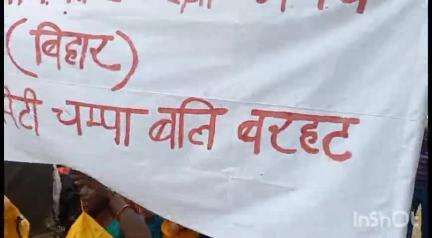 (बिहार)
चम्पा बलि बरहट
InShOt